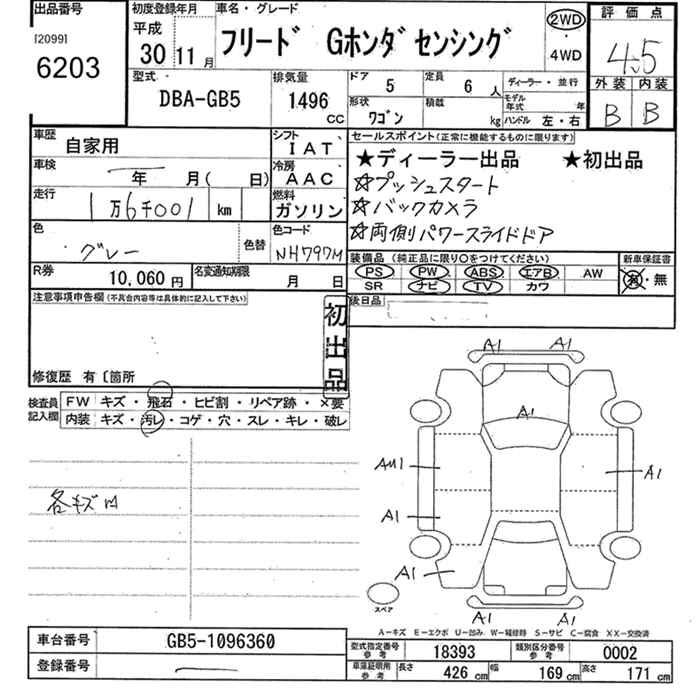 出品番号
120991
6203
初度登録年月
平成
30年 11月
車名・グレード
フリード Gホンダセンシング
2WD
・
4WD
評価点
4.5
外装 内装
B B
型式
DBA-GB5
排気量
1496 CC
ドア 5
定員 6人
ディーラー・並行
形状 ワゴン
積載 kg
モデル年式 年
ハンドル 左・右
車歴 自家用
シフト IAT
車検 年 月( 日)
冷房 AAC
走行 1万6千001 km
燃料 ガソリン
色 グレー
色替
色コード NH797M
R券 10,060円
名変通知期限 月 日
セールスポイント(正常に機能するものに限ります)
★ディーラー出品 ★初出品
☆プッシュスタート
☆バックカメラ
☆両側パワースライドドア
装備品(純正品に限り○をつけてください)
新車保証書
PS PW ABS エアB AW
SR ナビ TV カワ
有・無
後日品
注意事項申告欄(不具合内容等は具体的に記入して下さい)
初出品
修復歴 有〔箇所
検査員記入欄
FW キズ・飛石・ヒビ割・リペア跡・×要
内装 キズ・汚レ・コゲ・穴・スレ・キレ・破レ
各キズ凹
A1 A1
A1
AU1 A1
A1
A1
A1 A1
スペア
A－キズ E－エクボ U－凹み W－補修跡 S－サビ C－腐食 XX－交換済
車台番号 GB5-1096360
登録番号
型式指定番号 参考 18393
類別区分番号 参考 0002
車庫証明用 参考 長さ 426 cm 幅 169 cm 高さ 171 cm